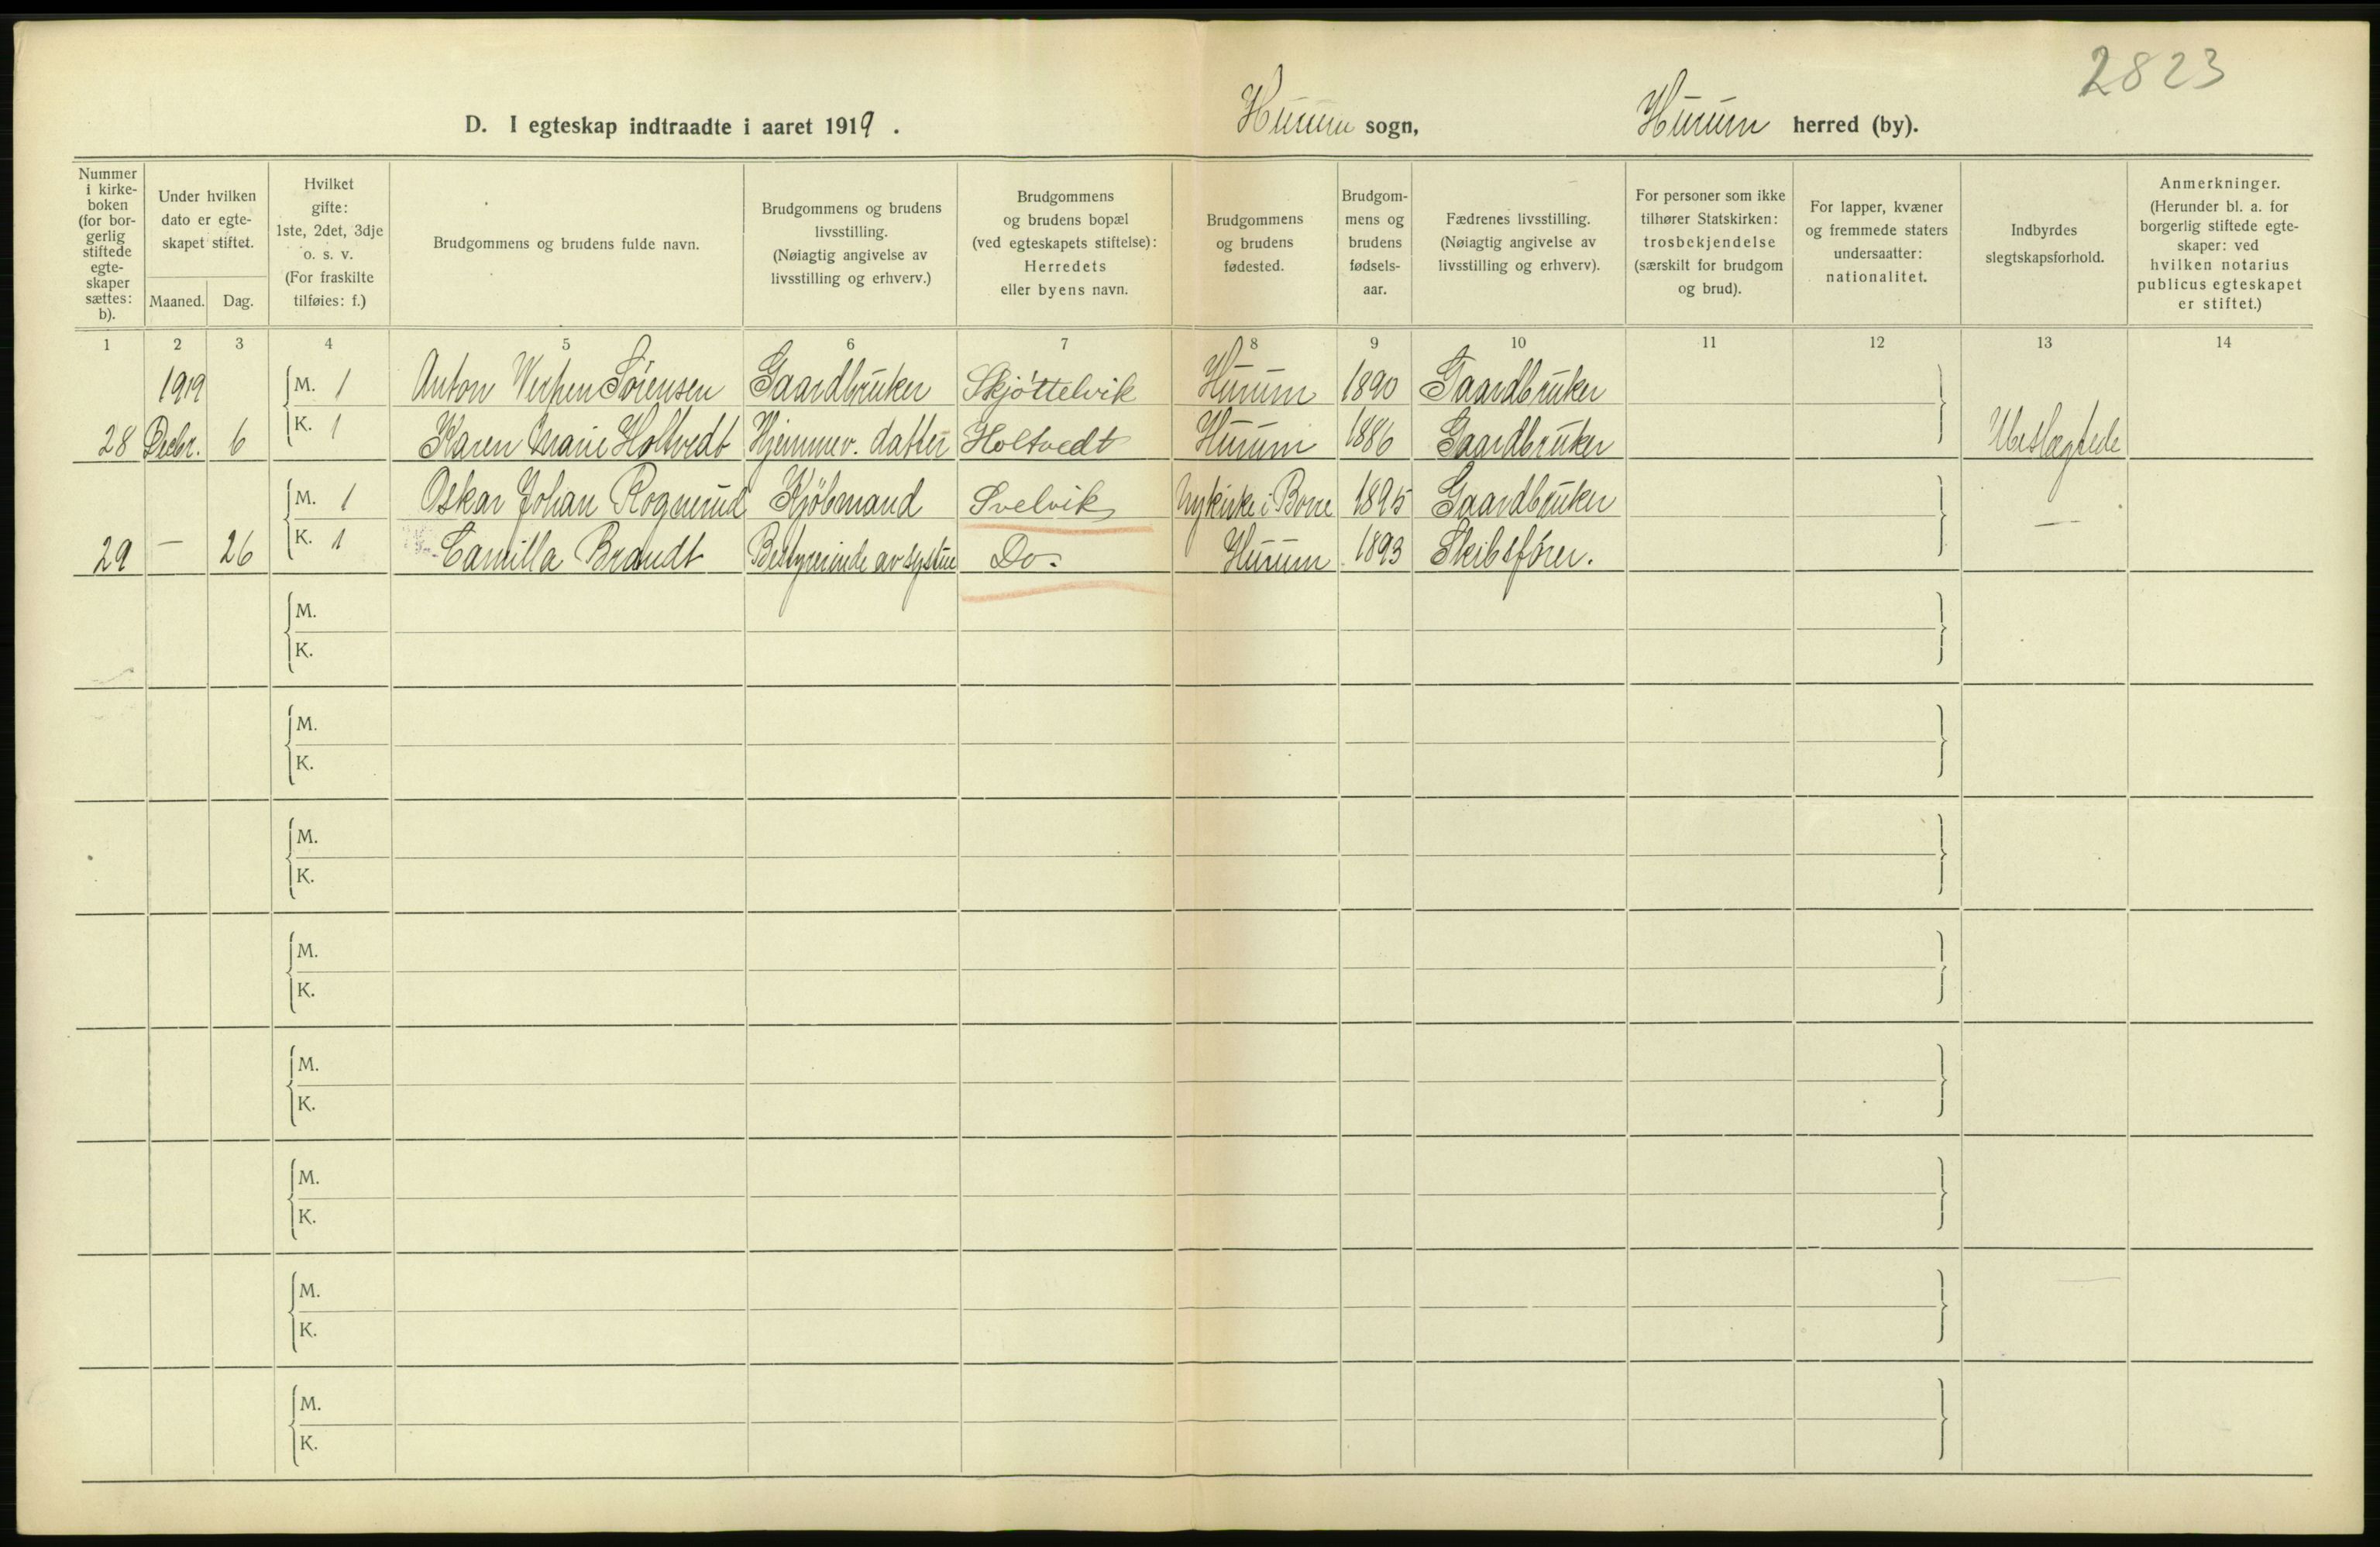 2823
D. I egteskap indtraadte i aaret 1919. Hurum sogn, Hurum herred (by).
Nummer i kirke-boken (for bor-gerlig stiftede egte-skaper sættes: b).
Under hvilken dato er egte-skapet stiftet.
Maaned. Dag.
Hvilket gifte: 1ste, 2det, 3dje o. s. v. (For fraskilte tilføies: f.)
Brudgommens og brudens fulde navn.
Brudgommens og brudens livsstilling. (Nøiagtig angivelse av livsstilling og erhverv.)
Brudgommens og brudens bopæl (ved egteskapets stiftelse): Herredets eller byens navn.
Brudgommens og brudens fødested.
Brudgom-mens og brudens fødsels-aar.
Fædrenes livsstilling. (Nøiagtig angivelse av livsstilling og erhverv).
For personer som ikke tilhører Statskirken: trosbekjendelse (særskilt for brudgom og brud).
For lapper, kvæner og fremmede staters undersaatter: nationalitet.
Indbyrdes slegtskapsforhold.
Anmerkninger. (Herunder bl. a. for borgerlig stiftede egte-skaper: ved hvilken notarius publicus egteskapet er stiftet.)
1 2 3 4 5 6 7 8 9 10 11 12 13 14
1919 M. 1 Anton Sörensen Gaardbruker Skjöttelvik Hurum 1890 Gaardbruker
28 Decbr. 6 K. 1 Karen Marie Holtvedt Hjemmev. datter Holtvedt Hurum 1886 Gaardbruker Ubeslægtede
M. 1 Oskar Johan Rognerud Kjöbmand Svelvik Nykirke i Borre 1895 Gaardbruker
29 — 26 K. 1 Camilla Brandt Bestyrerinde av systue Do. Hurum 1893 Skibsförer. —
M.
K.
M.
K.
M.
K.
M.
K.
M.
K.
M.
K.
M.
K.
M.
K.